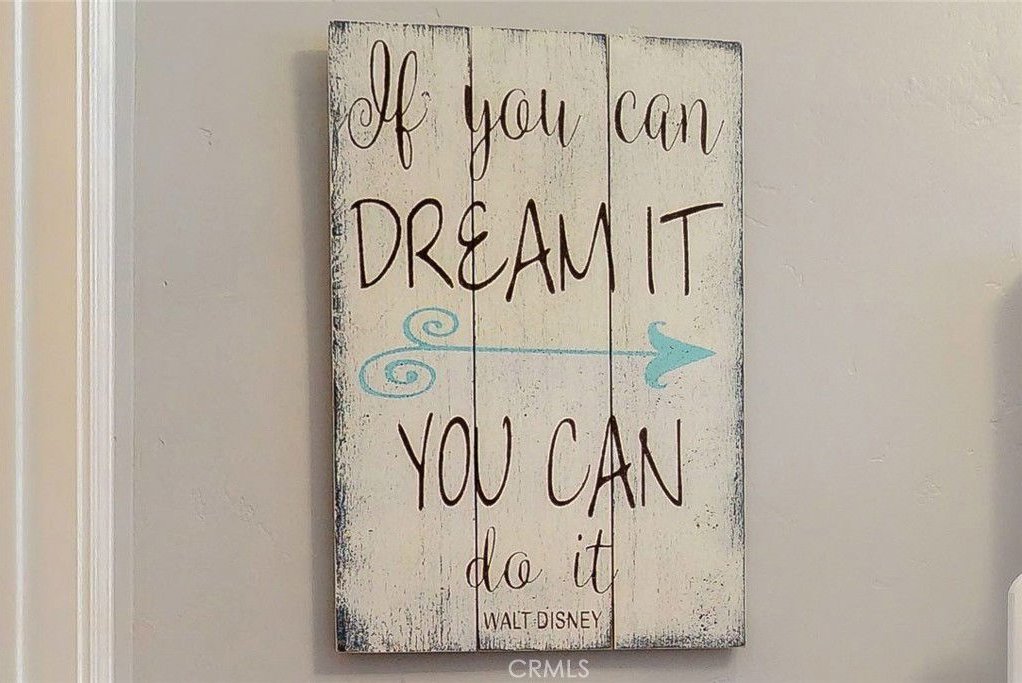 If you can
DREAM IT
YOU CAN
do it
WALT DISNEY
CRMLS